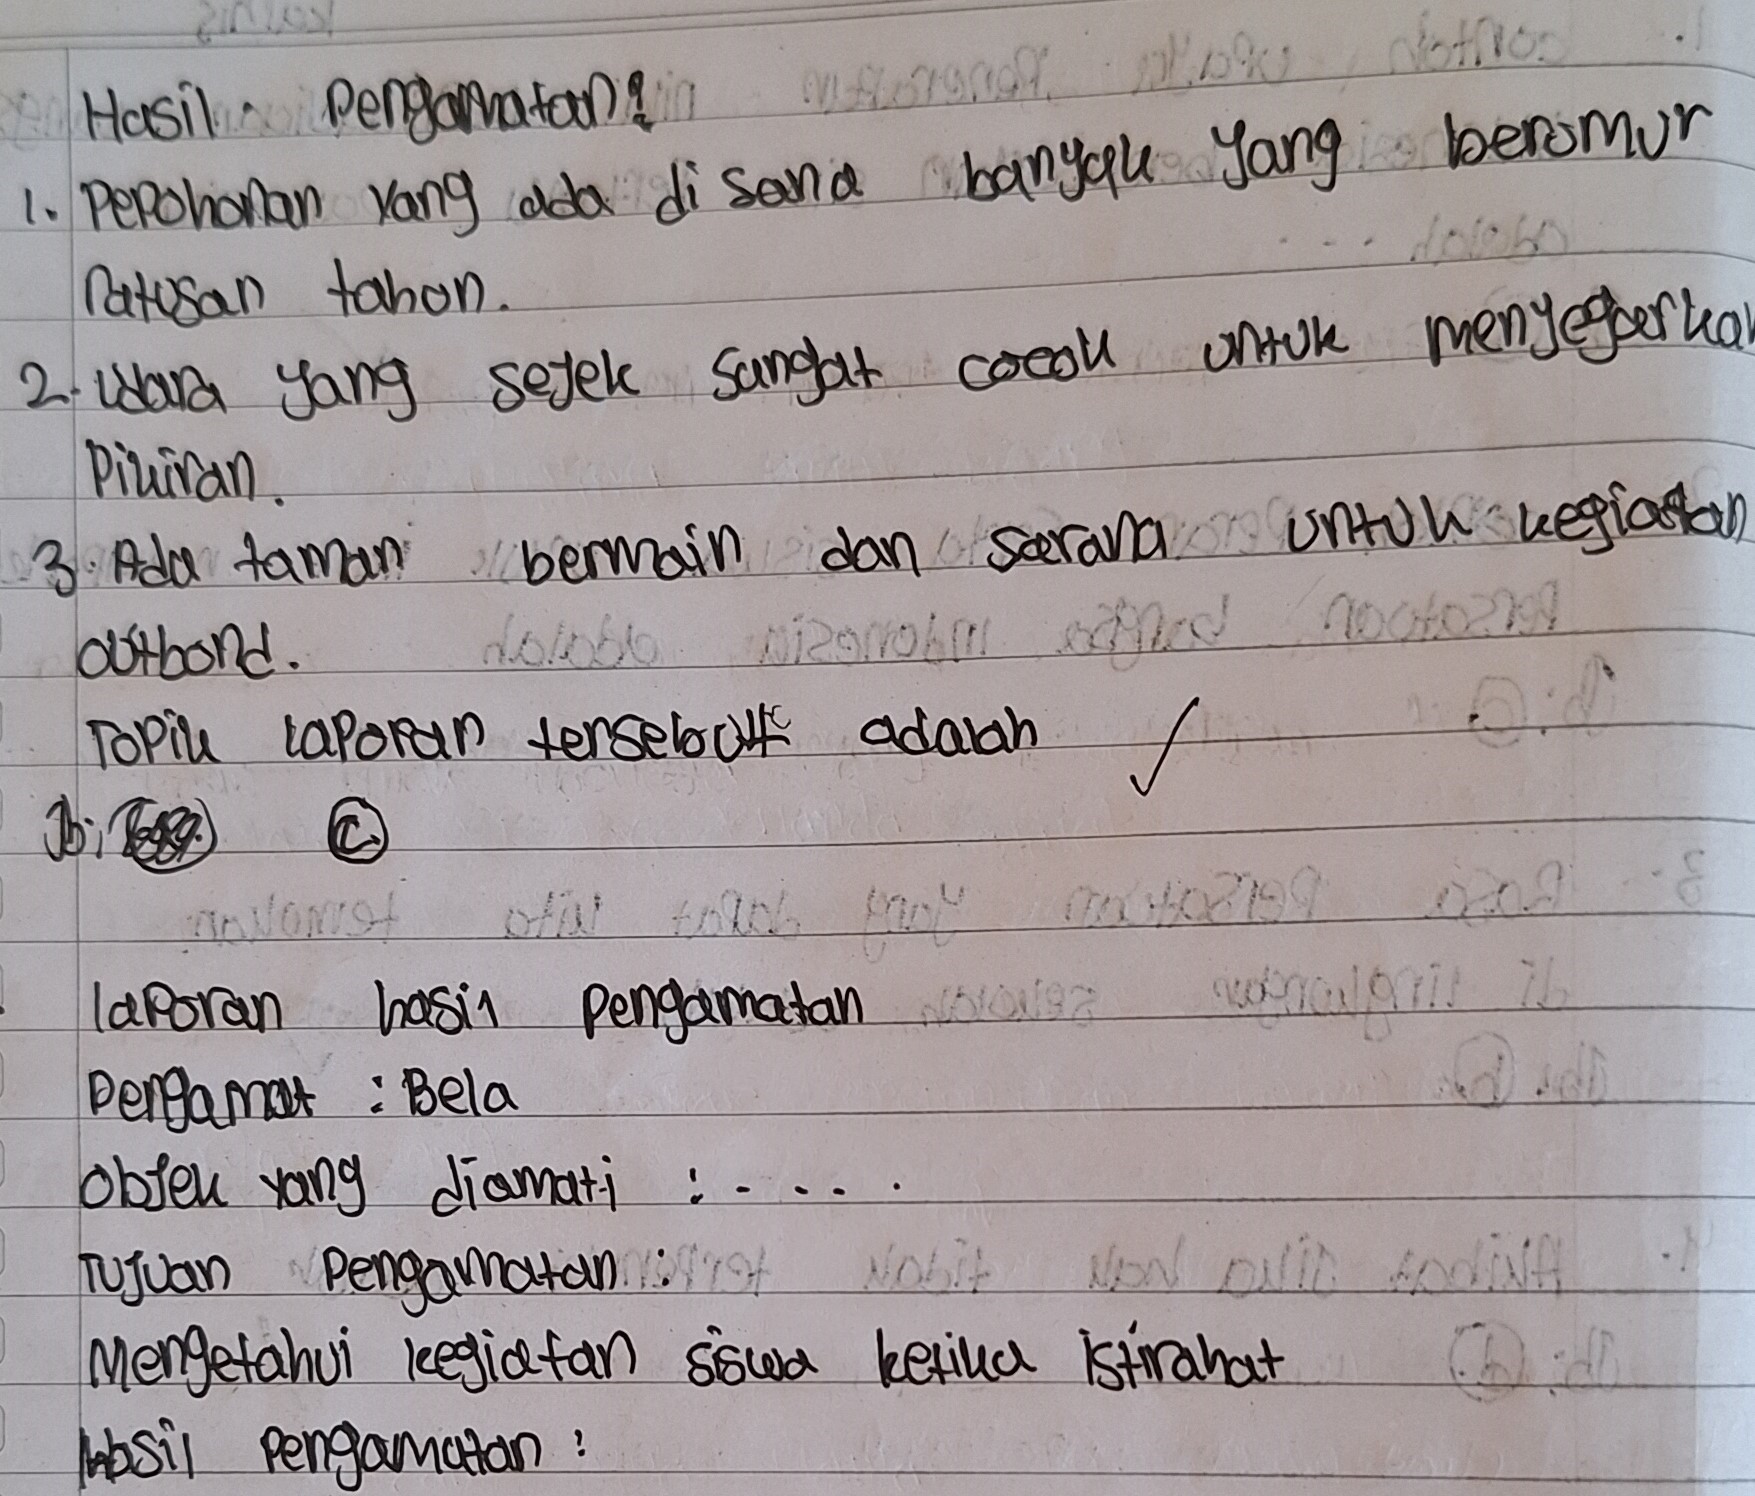 Hasil Pengamatan:
1. Pepohonan yang ada di sana banyak yang berumur
ratusan tahun.
2. Udara yang sejek sangat cocok untuk menyegarkan
Pikiran.
3. Ada taman bermain dan sarana untuk kegiatan
outbond.
Topik laporan tersebut adalah
Jb: C.
laporan hasil Pengamatan
Pengamat : Bela
Objek yang diamati : . . . .
Tujuan Pengamatan :
Mengetahui kegiatan siswa ketika istirahat
Hasil Pengamatan :